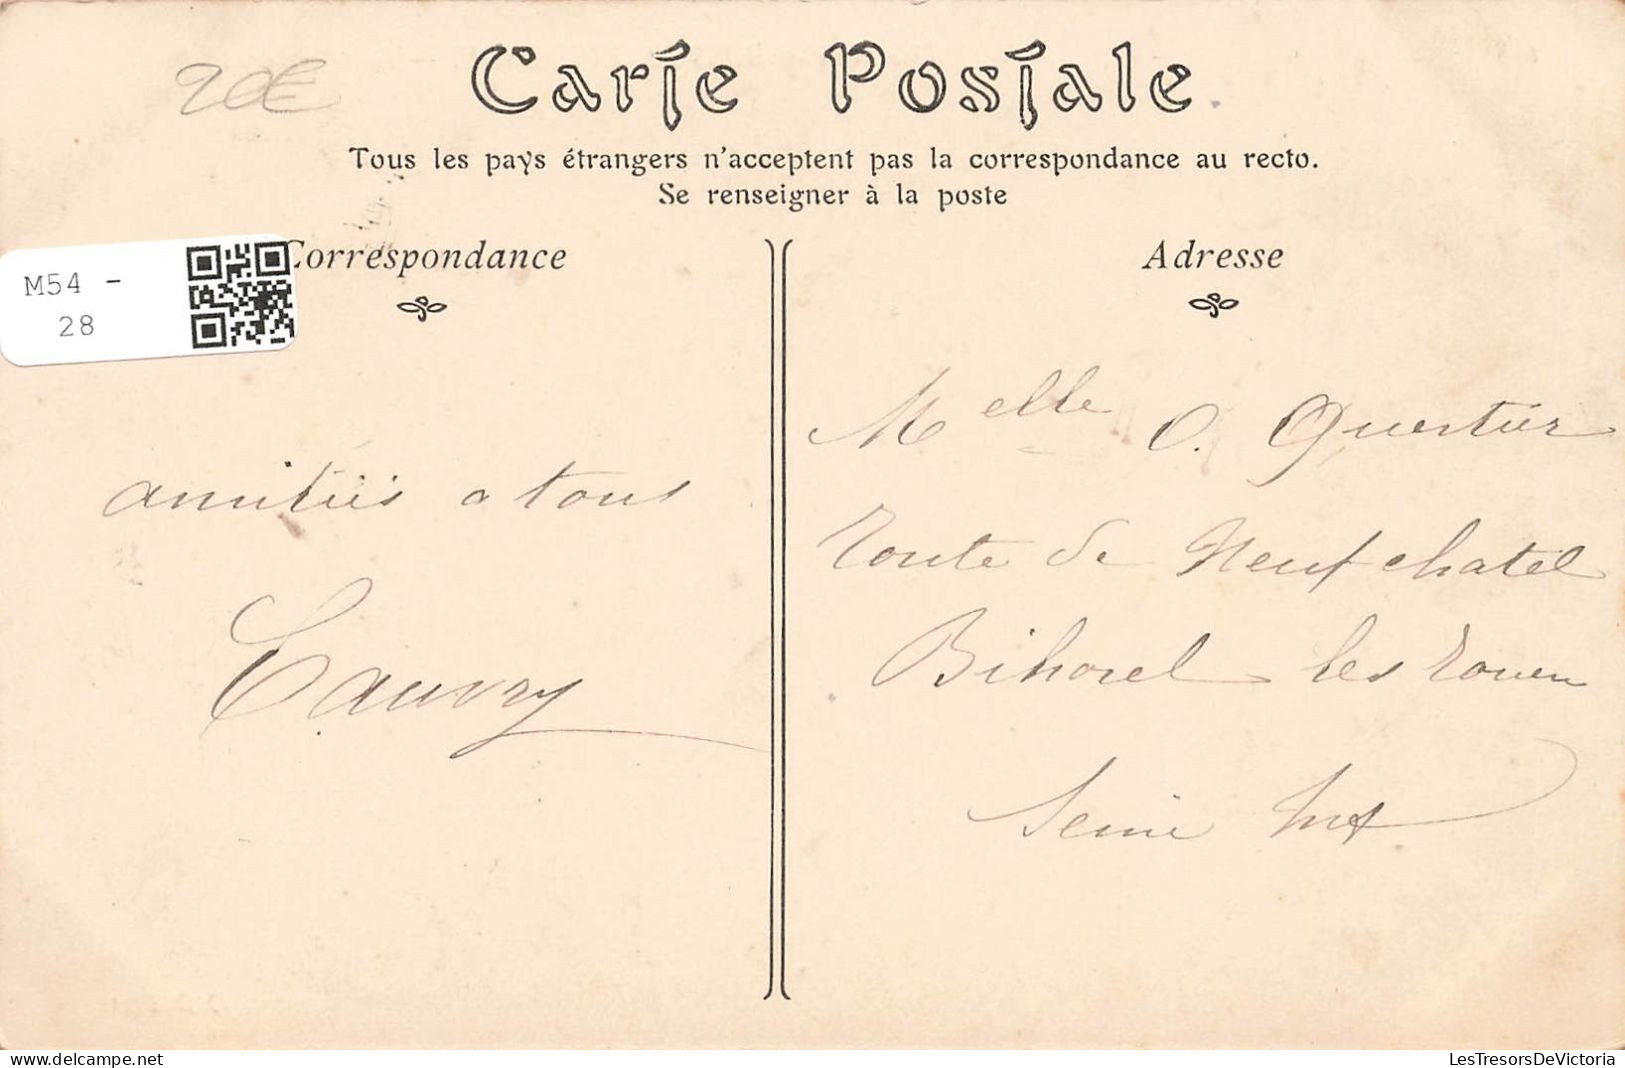 20€
Carte Postale
Tous les pays étrangers n'acceptent pas la correspondance au recto.
Se renseigner à la poste
M54 -
28
Correspondance
Adresse
Melle O. Quertier
Route de Neufchatel
Bihorel les Rouen
Seine Inf
amitiés a tous
Cauvry
delcampe.net
LesTresorsDeVictoria